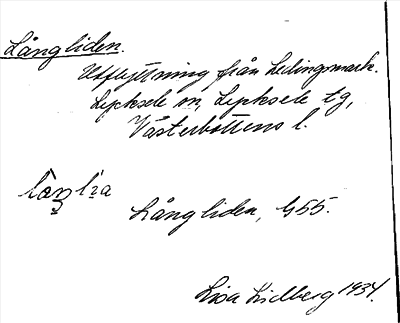 Långliden.
Utflyttning från Lidingsmark.
Lycksele sn, Lycksele tg,
Västerbottens l.
Långliden, G55.
Lisa Lidberg 1934.